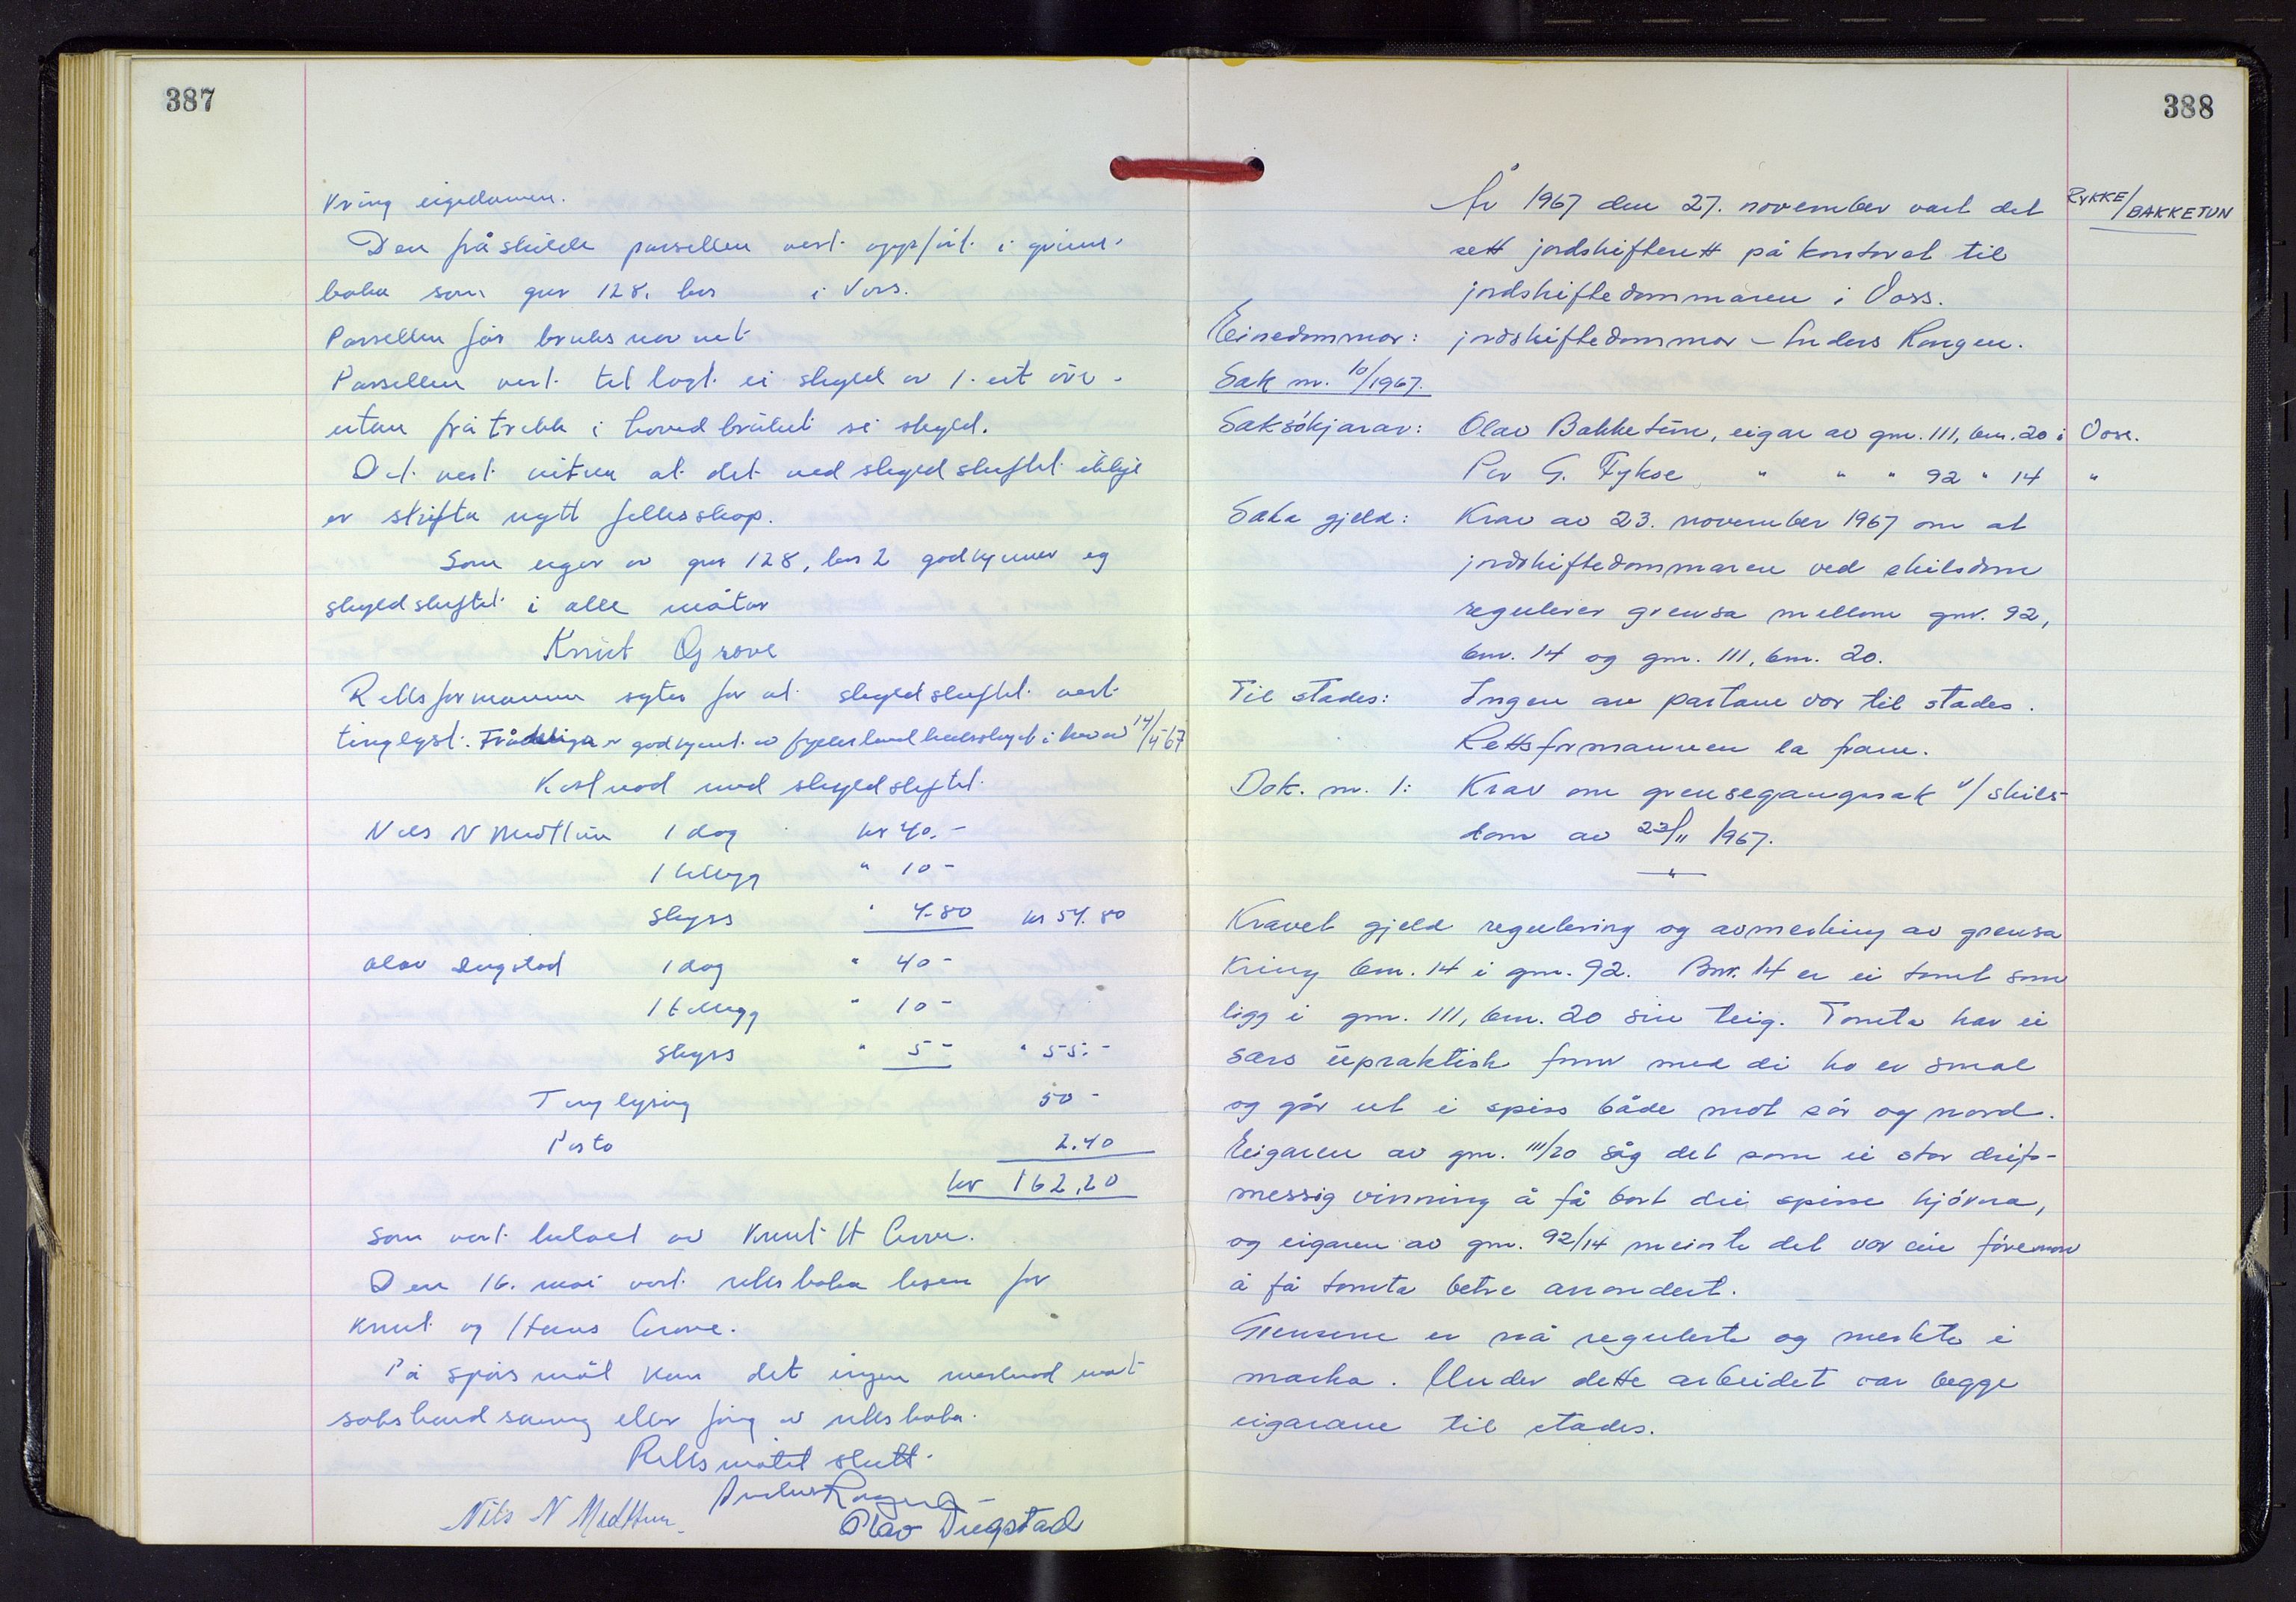 387
kring eigedomen.
Den fråskilde parsellen vert oppført i grunn-
boka som gnr 128, bnr i Voss.
Parsellen får bruksnavnet
Parsellen vert tillagt ei skyld av 1 eit øre -
utan fråtrekk i hovedbruket si skyld.
Det vert vitna at det ved skyldskiftet ikkje
er skifta nytt fellesskap.
Som eigar av gnr 128, bnr 2 godkjenner eg
skyldskiftet i alle måtar
Knut Grove
Rettsformannen syter for at skyldskiftet vert
tinglyst. Frådelinga er godkjent av fylkeslandbruksstyret i brev av 14/4-67
Kostnad med skyldskiftet.
Nils N Medtun 1 dag kr 40.-
1 tillegg " 10-
Skyss " 4-80 kr 54.80
Olav Dugstad 1 dag " 40-
1 tillegg " 10-
Skyss " 5- " 55.-
Tinglysing 50-
Porto 2.40
kr 162.20
som vert betalt av Knut H Grove.
Den 16. mai vert rettsboka lesen for
Knut og Hans Grove.
På spørsmål kom det ingen merknad mot
sakshandsaming ellerføring av rettsboka.
Rettsmøtet slutt.
Anders Rongen
Nils N Medtun. Olav Dugstad
388
RYKKE/BAKKETUN
År 1967 den 27. november vart det
sett jordskifterett på kontoret til
jordskiftedommaren i Voss.
Einedommar: jordskiftedommar Anders Rongen.
Sak nr. 10/1967.
Saksøkjarar: Olav Bakketun, eigar av gnr. 111, bnr. 20 i Voss.
Per G. Fykse " " " 92 " 14 "
Saka gjeld: Krav av 23. november 1967 om at
jordskiftedommaren ved skilsdom
regulerer grensa mellom gnr. 92,
bnr. 14 og gnr. 111, bnr. 20.
Til stades: Ingen av partane var til stades.
Rettsformannen la fram.
Dok. nr. 1: Krav om grensegangssak v/ skils-
dom av 23/11 1967.
"
Kravet gjeld regulering og avmerking av grensa
kring bnr. 14 i gnr. 92. Bnr. 14 er ei tomt som
ligg i gnr. 111, bnr. 20 sin teig. Tomta har ei
særs upraktisk form med di ho er smal
og går ut i spiss både mot sør og nord.
Eigaren av gnr. 111/20 såg det som ei stor drifts-
messig vinning å få bort dei spisse hjørna,
og eigaren av gnr. 92/14 meinte det var ein føremon
å få tomta betre arrondert.
Grensene er nå regulerte og merkte i
marka. Under dette arbeidet var begge
eigarane til stades.